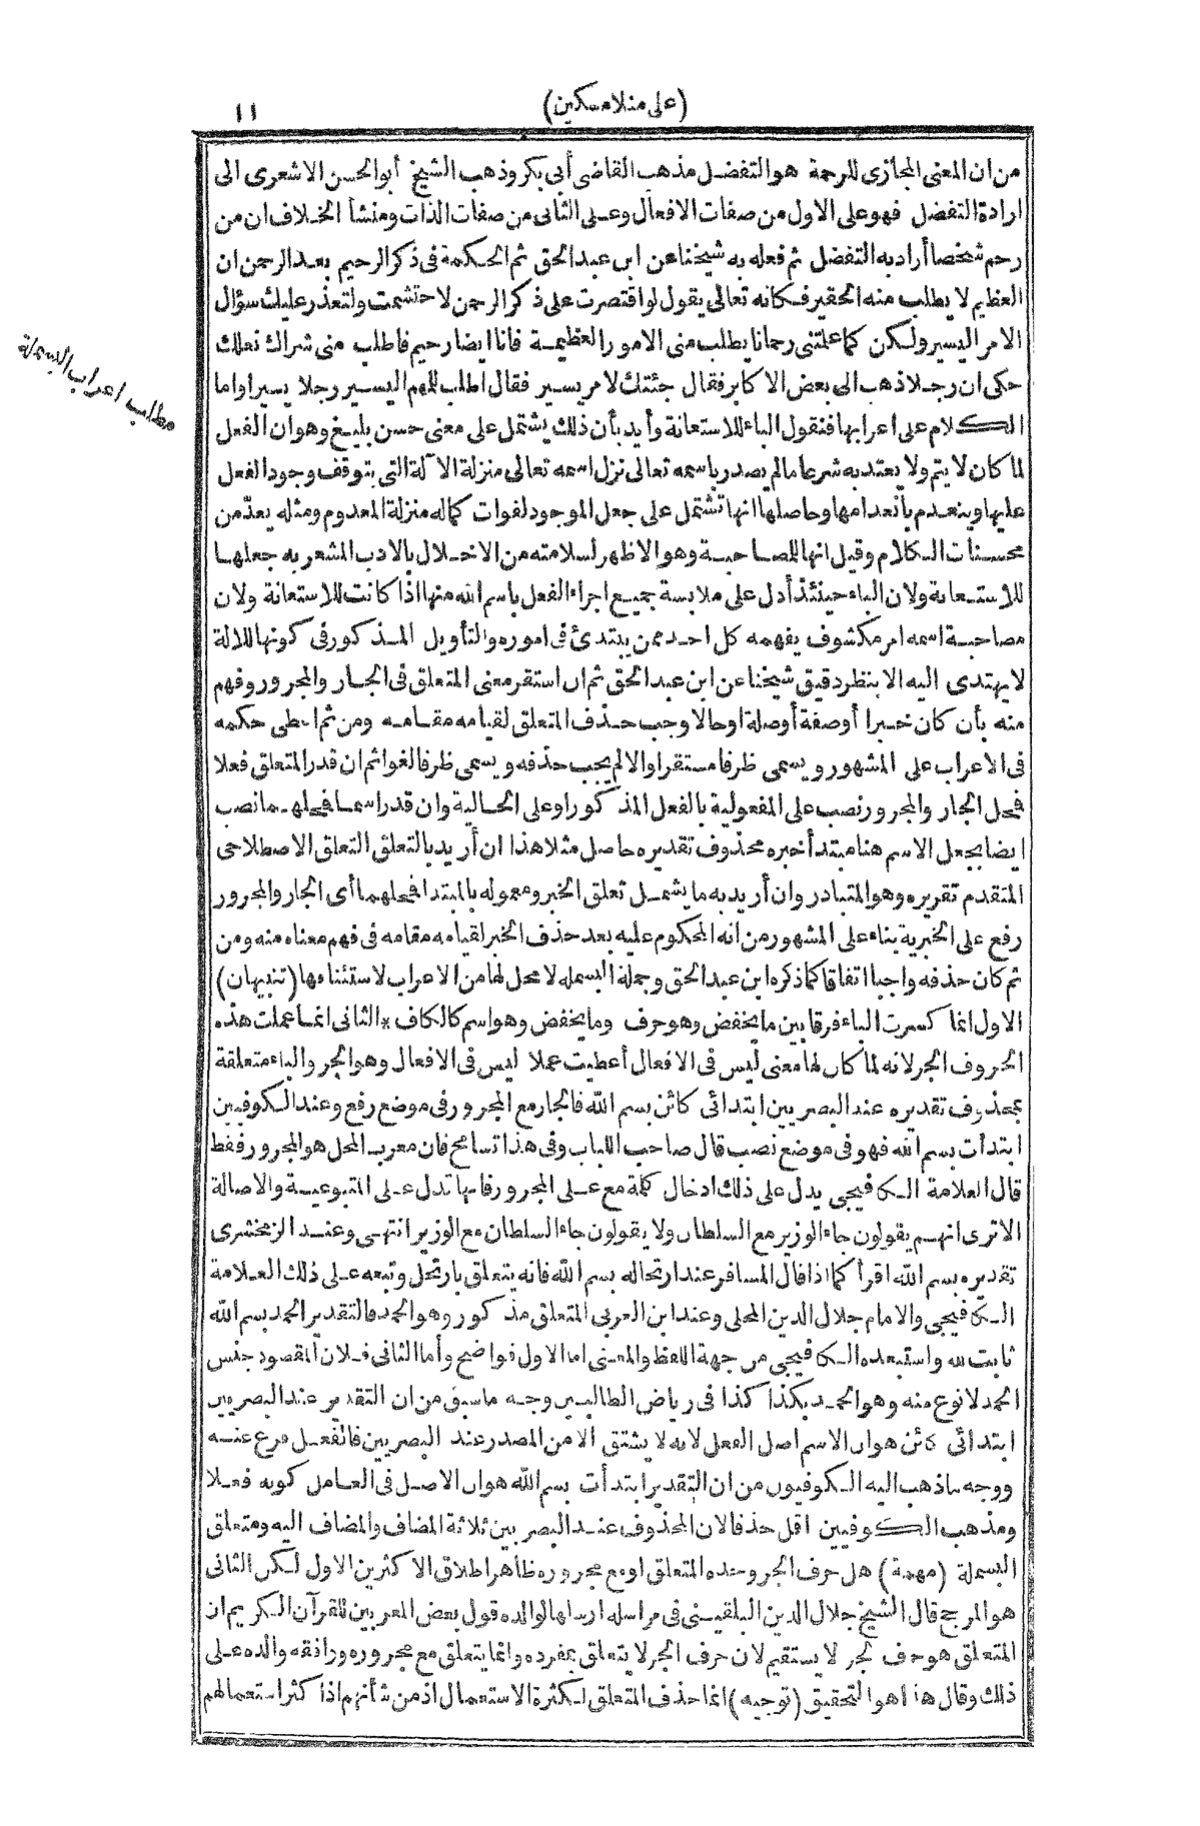 (على منلا مسكين)
١١
من ان المعنى المجازى للرحمة هو التفضل مذهب القاضى أبى بكر وذهب الشيخ أبو الحسن الاشعرى الى
ارادة التفضل فهو على الاول من صفات الافعال وعلى الثانى من صفات الذات ومنشأ الخلاف ان من
رحم شخصا أراد به التفضل ثم فعله به شيخنا عن ابن عبد الحق ثم الحكمة فى ذكر الرحيم بعد الرحمن ان
العظيم لا يطلب منه الحقير فكانه تعالى يقول لو اقتصرت على ذكر الرحمن لاحتشمت ولتعذر عليك سؤال
الامر اليسير ولكن كما علمتنى رحمانا يطلب منى الامور العظيمة فانا ايضا رحيم فاطلب منى شراك نعلك
حكى ان رجلا ذهب الى بعض الاكابر فقال جئتك لامر يسير فقال اطلب للمهم اليسير رجلا يسيرا واما
الكلام على اعرابها فنقول الباء للاستعانة وأيد بأن ذلك يشتمل على معنى حسن بليغ وهو ان الفعل
لما كان لا يتم ولا يعتد به شرعا مالم يصدر باسمه تعالى نزل اسمه تعالى منزلة الآلة التى يتوقف وجود الفعل
عليها وينعدم بانعدامها وحاصلها انها تشتمل على جعل الموجود لفوات كماله منزلة المعدوم ومثله يعد من
محسنات الكلام وقيل انها للمصاحبة وهو الاظهر لسلامته من الاخلال بالادب المشعر به جعلها
للاستعانة ولان الباء حينئذ أدل على ملابسة جميع اجراء الفعل باسم الله منها اذا كانت للاستعانة ولان
مصاحبة اسمه امر مكشوف يفهمه كل احد ممن يبتدئ فى اموره والتأويل المذكور فى كونها للالة
لا يهتدى اليه الا بنظر دقيق شيخنا عن ابن عبد الحق ثم ان استقر معنى المتعلق فى الجار والمجرور وفهم
منه بأن كان خبرا أو صفة أو صلة او حالا وجب حذف المتعلق لقيامه مقامه ومن ثم اعطى حكمه
فى الاعراب على المشهور ويسمى ظرفا مستقرا والا لم يجب حذفه ويسمى ظرفا لغوا ثم ان قدر المتعلق فعلا
فمحل الجار والمجرور نصب على المفعولية بالفعل المذكور او على الحالية وان قدر اسما فمحلهما نصب
ايضا بجعل الاسم هنا مبتدأ خبره محذوف تقديره حاصل مثلا هذا ان أريد بالتعلق التعلق الاصطلاحى
المتقدم تقريره وهو المتبادر وان أريد به ما يشمل تعلق الخبر ومعموله بالمبتدا فمحلهما أى الجار والمجرور
رفع على الخبرية بناء على المشهور من انه المحكوم عليه بعد حذف الخبر لقيامه مقامه فى فهم معناه منه ومن
ثم كان حذفه واجبا اتفاقا كما ذكره ابن عبد الحق وجملة البسمله لا محل لها من الاعراب لاستئنافها (تنبيهان)
الاول انما كسرت الباء فرقا بين ما يخفض وهو حرف وما يخفض وهو اسم كالكاف * الثانى انما عملت هذه
الحروف الجر لانه لما كان لها معنى ليس فى الافعال أعطيت عملا ليس فى الافعال وهو الجر والباء متعلقة
بمحذوف تقديره عند البصريين ابتدائى كائن بسم الله فالجار مع المجرور فى موضع رفع وعند الكوفيين
ابتدأت بسم الله فهو فى موضع نصب قال صاحب اللباب وفى هذا تسامح فان معرب المحل هو المجرور فقط
قال العلامة الكافيجى يدل على ذلك ادخال كلمة مع على المجرور فانها تدل على المتبوعية والاصالة
الا ترى انهم يقولون جاء الوزير مع السلطان ولا يقولون جاء السلطان مع الوزير انتهى وعند الزمخشرى
تقديره بسم الله اقرأ كما اذا قال المسافر عند ارتحاله بسم الله فانه يتعلق بارتحل وتبعه على ذلك العلامة
الكافيجى والامام جلال الدين المحلى وعند ابن العربى المتعلق مذكور وهو الحمد فالتقدير الحمد بسم الله
ثابت لله واستبعده الكافيجى من جهة اللفظ والمعنى اما الاول فواضح وأما الثانى فلان المقصود جنس
الحمد لا نوع منه وهو الحمد بكذا كذا فى رياض الطالبين وجه ماسبق من ان التقدير عند البصريين
ابتدائى كائن هو ان الاسم اصل الفعل لانه لا يشتق الا من المصدر عند البصريين فالفعل فرع عنه
ووجه ماذهب اليه الكوفيون من ان التقدير ابتدأت بسم الله هو ان الاصل فى العامل كونه فعلا
ومذهب الكوفيين اقل حذفا لان المحذوف عند البصريين ثلاثة المضاف والمضاف اليه ومتعلق
البسملة (مهمة) هل حرف الجر وحده المتعلق او مع مجروره ظاهر اطلاق الاكثرين الاول لكن الثانى
هو المرجح قال الشيخ جلال الدين البلقينى فى مراسله ارسلها لوالده قول بعض المعربين للقرآن الكريم ان
المتعلق هو حرف الجر لا يستقيم لان حرف الجر لا يتعلق بمفرده وانما يتعلق مع مجروره ووافقه والده على
ذلك وقال هذا هو التحقيق (توجيه) انما حذف المتعلق لكثرة الاستعمال اذ من شأنهم اذا كثر استعمالهم
مطلب اعراب البسملة